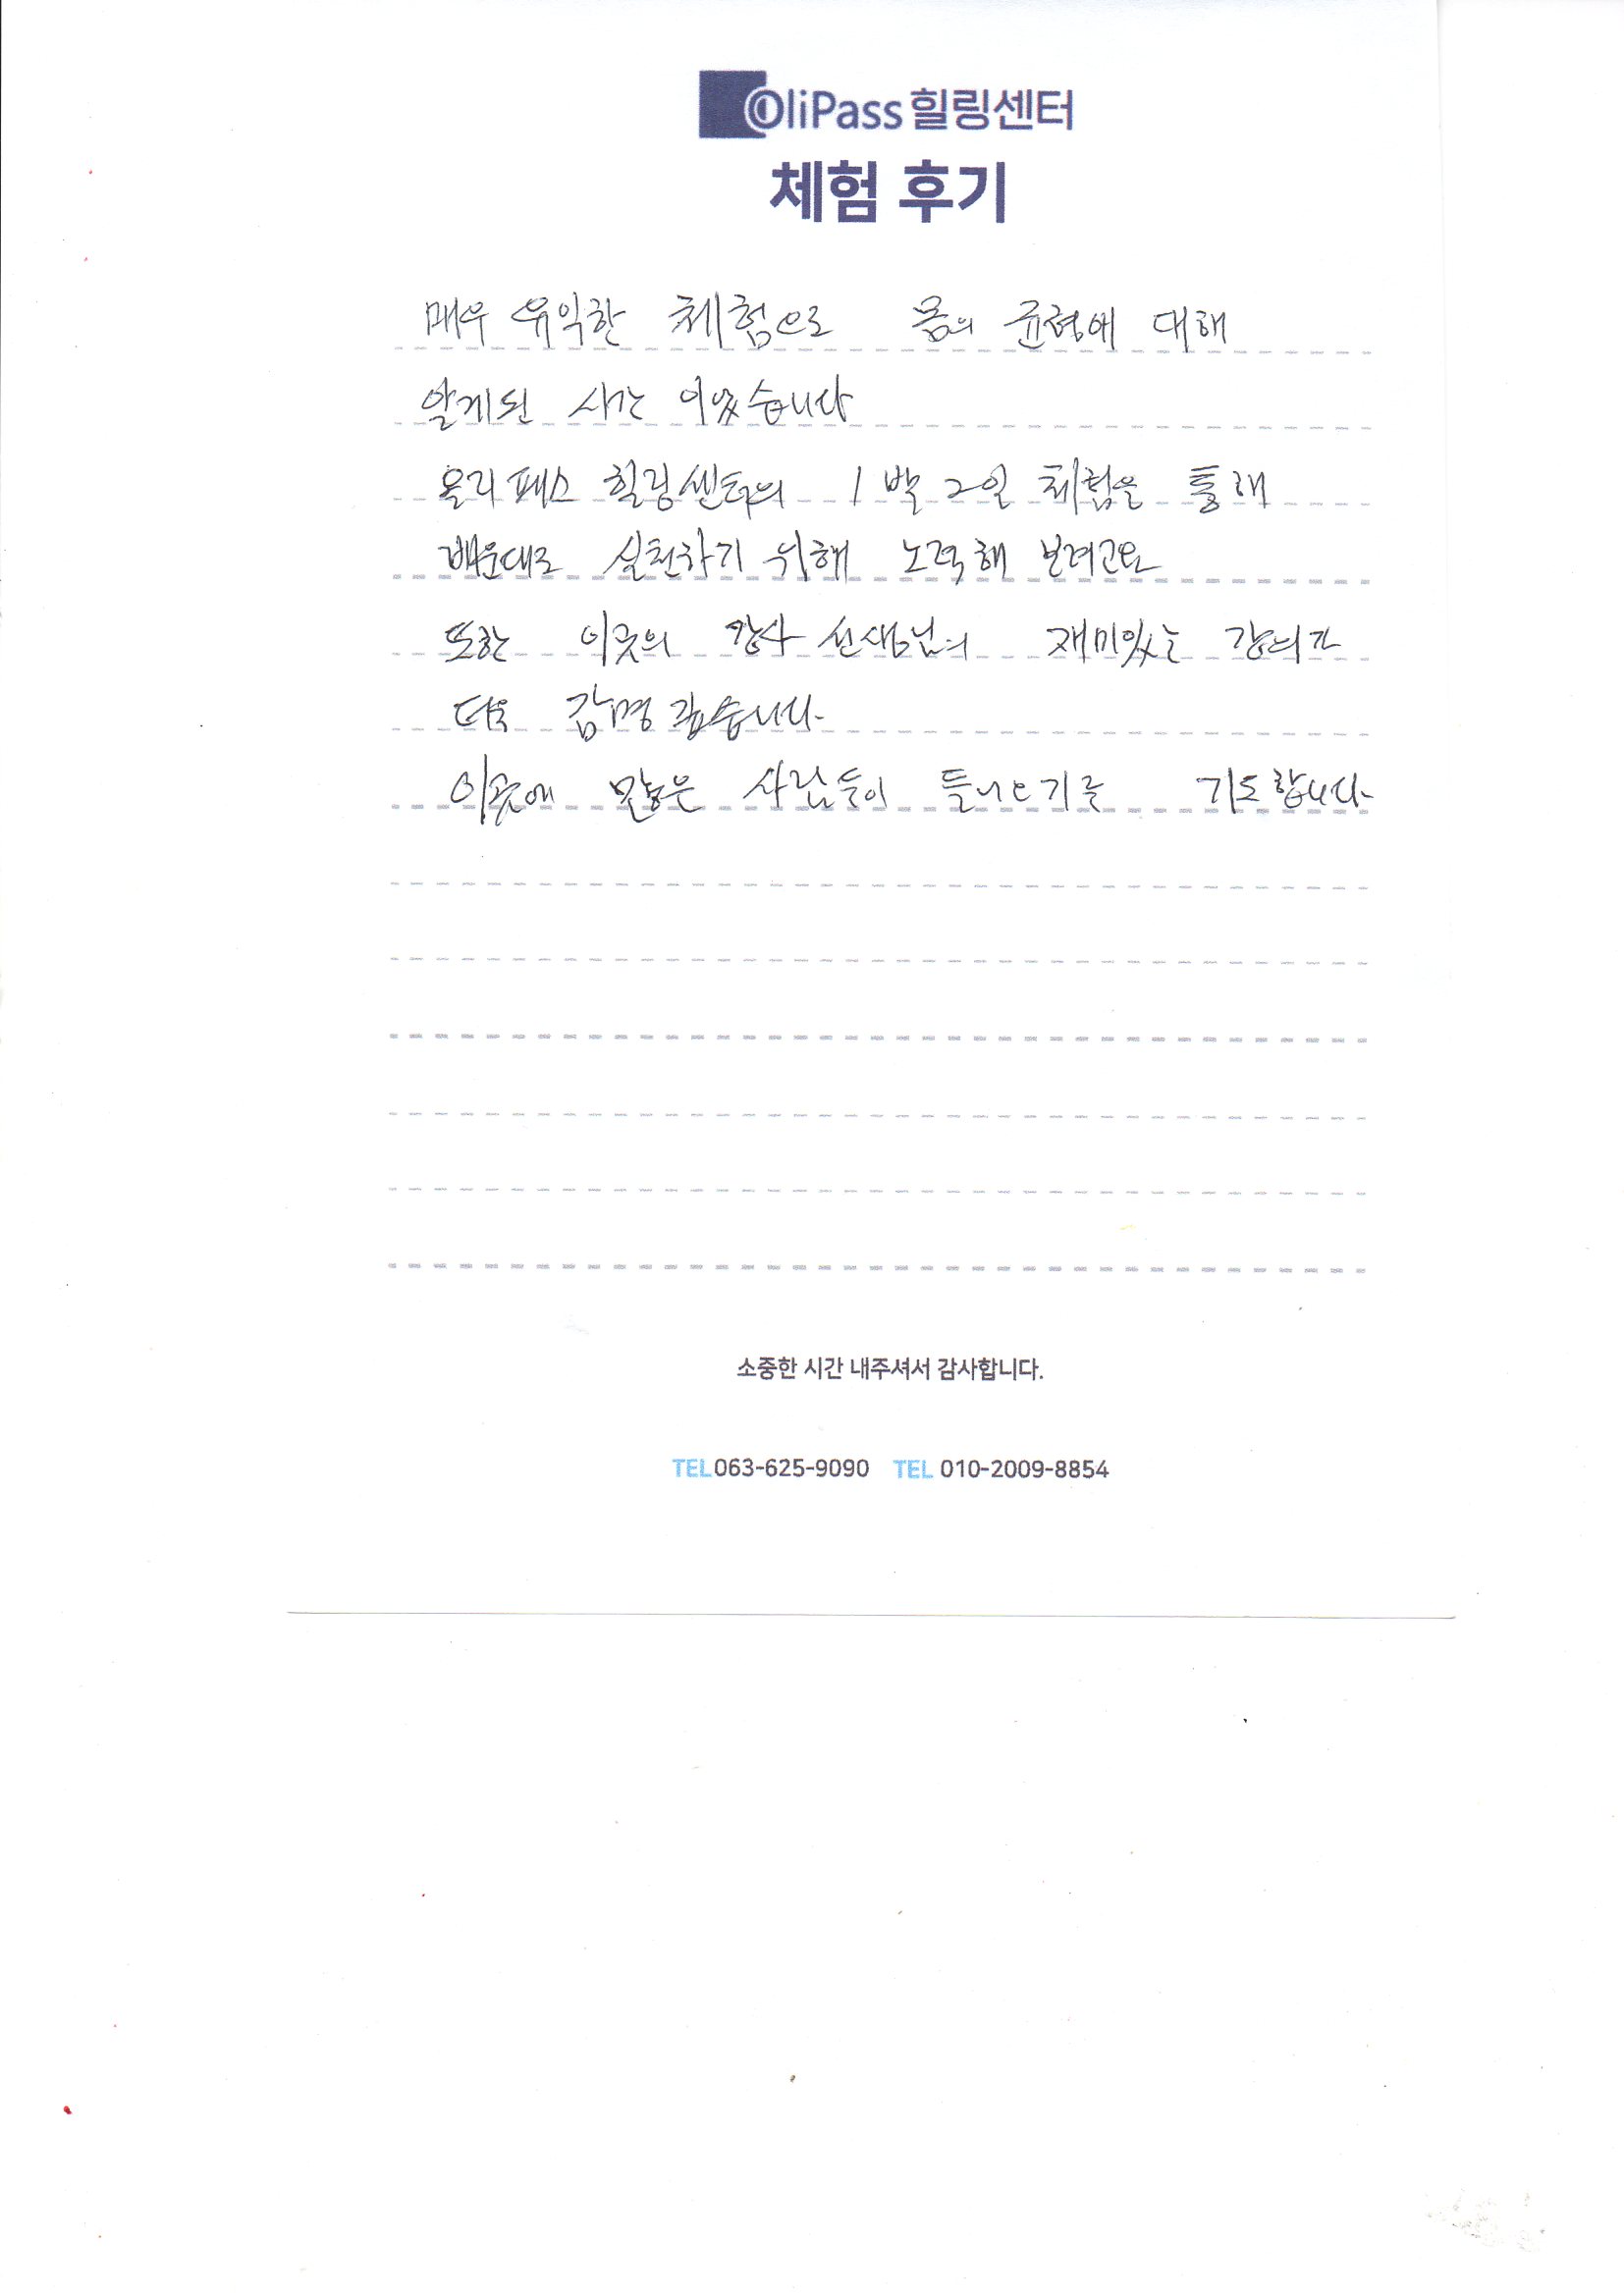 OliPass 힐링센터
체험 후기
매우 유익한 체험으로 몸의 균형에 대해
알게된 시간 이었습니다
올리패스 힐링센터의 1박 2일 체험을 통해
배운대로 실천하기 위해 노력해 보려고요
또한 이곳의 강사 선생님의 재미있는 강의가
더욱 감명 깊습니다.
이곳에 많은 사람들이 들니으기를 기도합니다.
소중한 시간 내주셔서 감사합니다.
TEL 063-625-9090 TEL 010-2009-8854